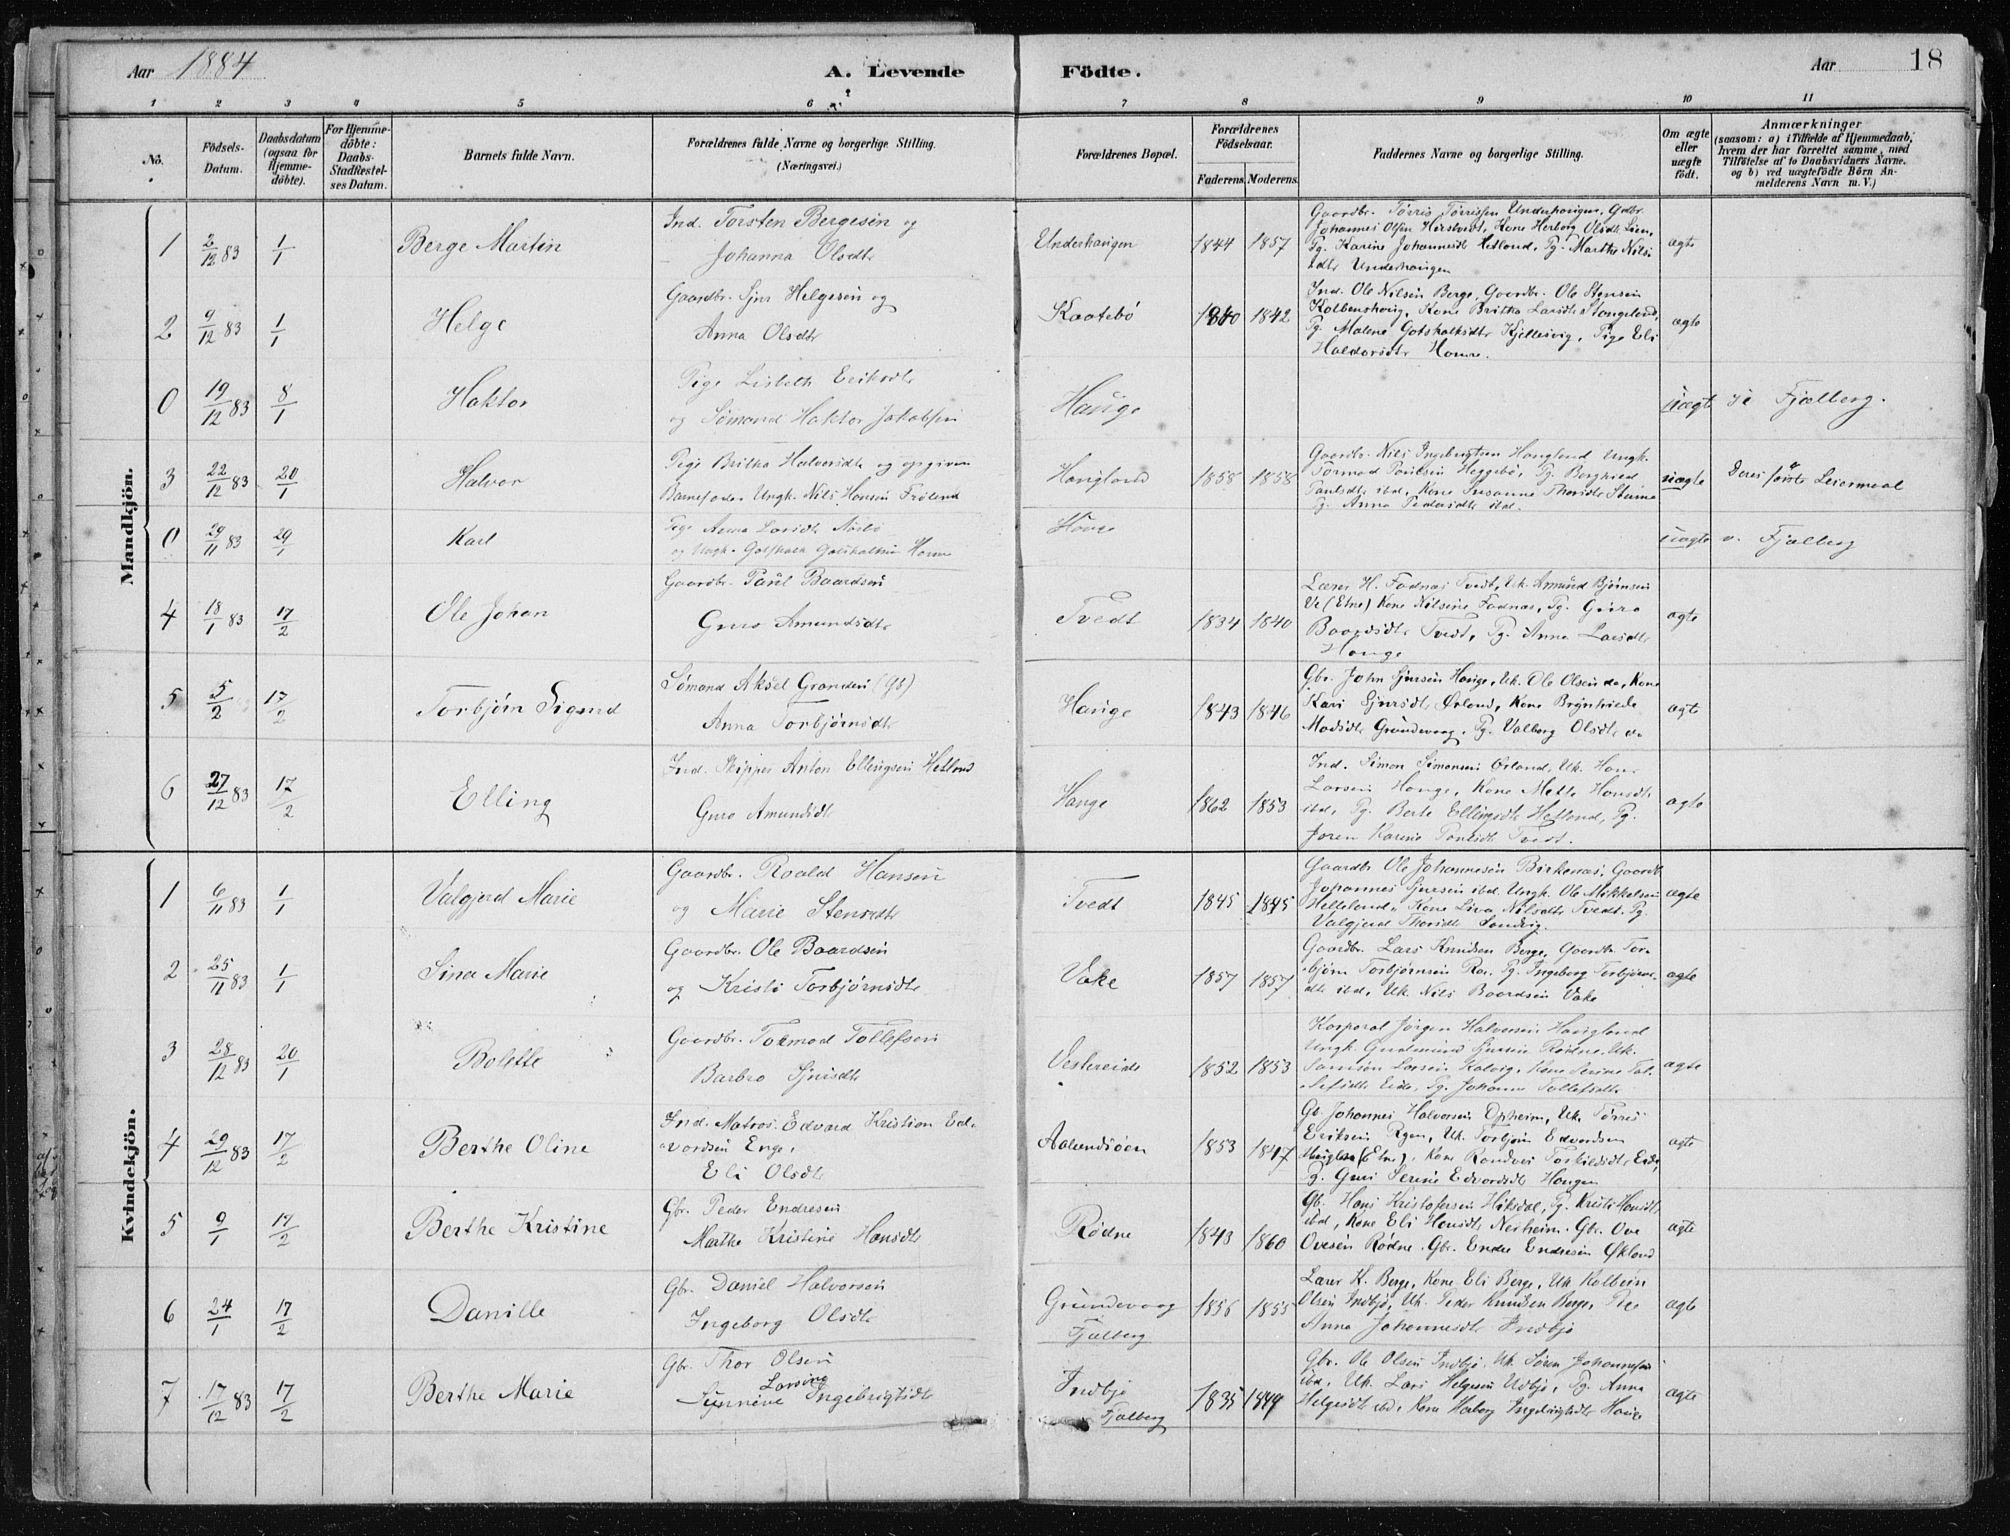 Aar 1884 A. Levende Födte. Aar 18
1 2 3 4 5 6 7 8 9 10 11
No.
Födsels-Datum.
Daabsdatum (ogsaa for Hjemme-döbte).
For Hjemme-döbte: Daabs-Stadfæstel-ses Datum.
Barnets fulde Navn.
Forældrenes fulde Navne og borgerlige Stilling. (Næringsvei.)
Forældrenes Bopæl.
Forældrenes Födselsaar.
Faderens. Moderens.
Faddernes Navne og borgerlige Stilling.
Om ægte eller uægte födt.
Anmærkninger
(saasom: a) i Tilfælde af Hjemmedaab, hvem der har forrettet samme, med Tilföielse af to Daabsvidners Navne, og b) ved uægtefödte Börn An-melderens Navn m. V.)
Mandkjön.
1 2/12 83 1/1 Berge Martin
Ind. Torsten Bergesen og
Johanna Olsdtr
Underhaugen 1844 1857
Gaardbr. Tørris Tørrissen Underhaugen, Gdbr.
Johannes Olsen Hirstvedt, Kone Herborg Olsdtr Lien,
Pg. Karine Johannesdtr Hetland, Pg. Marthe Nils-
dtr Underhaugen
ægte
2 9/12 83 1/1 Helge
Gaardbr. Sjur Helgesen og
Anna Olsdtr
Kaatebö 1840 1842
Ind. Ole Nilsen Berge, Gaardbr. Ole Stensen
Kolbenshaug, Kone Britha Larsdtr Stangeland,
Pg. Malene Gotskalksdtr Kjellesvig, Pige Eli
Haldorsdtr Homre.
ægte
0 19/12 83 8/1 Haktor
Pige Lisbeth Eriksdtr
og Sømand Haktor Jakobsen
Hauge
uægt
Fjælberg.
3 22/12 83 20/1 Halvor
Pige Britha Halvorsdtr og opgiven
Barnefader Ungk. Nils Hansen Frøland
Haugland 1858 1858
Gaardbr. Nils Ingebrigtsen Haugland, Ungk.
Tormod Paulsen Heggebø, Pg. Borghild
Paulsdtr ibd, Kone Susanne Thorsdtr Steine
Pg. Anna Pedersdtr ibd.
uægte
Deres første Leiermaal
0 29/11 83 29/1 Karl
Pige Anna Larsdtr
og Ungk. Gotskalk Gotskalksen
Hauge
uægte
v. Fjælberg
4 18/1 83 17/2 Ole Johan
Gaardbr. Paul Baardsen
Guro Amundsdtr
Tvedt 1834 1840
Lærer H. Fadnæs Tvedt, Uk. Amund Bjørnsen
Ve (Etne) Kone Nilsine Fadnæs, Pg. Guro
Baardsdtr Tvedt, Pg. Anna Larsdtr
Hauge
ægte
5 5/2 17/2 Torbjørn Sigurd
Sømand Aksel Granden (gs)
Anna Torbjørnsdtr
Hauge 1843 1846
Gbr. John Sjursen Hauge, Uk. Ole Olsen do, Kone
Kari Sjursdtr Ørland, Kone Brynhilde
Madsdtr Grundevaag, Pg. Valborg Olsdtr
ægte
6 27/12 83 17/2 Elling
Ind. Skipper Anton Ellingsen Hetland
Guro Amundsdtr
Hauge 1862 1853
Ind. Simon Simonsen Ørland, Uk. Hans
Larsen Hauge, Kone Mette Hansdtr
ibd, Pg. Berte Ellingsdtr Hetland, Pg.
Joren Karine Paulsdtr Tvedt.
ægte
Kvindekjön.
1 6/11 83 1/1 Valgjerd Marie
Gaardbr. Roald Hansen
og Marie Stensdtr
Tvedt 1845 1845
Gaardbr Ole Johannesen Birkenæs, Gaardb
Johannes Sjursen ibd, Ungk. Ole Mikkelsen
Helleland, Kone Liva Nilsdtr Tvedt, Pg.
Valgjerd Thorsdtr Sandvig.
ægte
2 25/11 83 1/1 Sina Marie
Gaardbr. Ole Baardsen
og Kristi Torbjørnsdtr
Vake 1857 1857
Gaardbr. Lars Knudsen Berge, Gaardb. Tor-
bjørn Torbjørnsen Ra, Pg. Ingeborg Torbjørns-
dtr ibd, Uk. Nils Baardsen Vake
ægte
3 28/12 83 20/1 Bolette
Gaardbr. Tormod Tollefsen
Barbro Sjursdtr
Vestreide 1852 1853
Korporal Jørgen Halvorsen Haugland
Ungk. Gudmund Sjursen Rødne, Uk.
Samson Larsen Kalvig, Kone Serine Tol-
lefsdtr Eide, Pg. Johanne Tollefsdtr
ægte
4 29/12 83 17/2 Berthe Oline
Ind. Matros. Edvard Kristian Ed-
vardsen Enge,
Eli Olsdtr
Aalundsöen 1853 1847
Gb Johannes Halvorsen Opheim, Uk. Tørres
Eriksen Rygen, Uk. Torbjørn Edvardsen
(Etne), Kone Randvei Torkildsdtr Eide,
Pg. Guri Serine Edvardsdtr Haugen
ægte
5 9/1 17/2 Berthe Kristine
Gbr. Peder Endresen
Marthe Kristine Hansdtr
Rødne 1843 1860
Gb. Hans Kristofersen Hiksdal, Pg. Kristi Hansdtr
ibd, Kone Eli Hansdtr Nerheim, Gbr. Ove
Ovesen Rødne, Gbr. Endre Endresen Økland
ægte
6 24/1 17/2 Danille
Gbr. Daniel Halvorsen
Ingeborg Olsdtr
Grundevaag Fjælberg 1856 1855
Lærer K. Berge, Kone Eli Berge, Uk Kolbein
Olsen Indbjø, Uk. Peder Knudsen Berge, Pige
Anna Johannesdtr Indbjø
ægte
7 17/12 83 17/2 Berthe Marie
Gbr. Thor Olsen
Larsine
Sunneve Ingebrigtsdtr
Indbjø Fjælberg 1835 1849
Gbr. Ole Olsen Indbjø, Uk. Søren Johannesen
ibd, Uk. Lars Helgesen Udbjø, Pg. Anna
Helgesdtr ibd, Kone Herborg Ingebrigtsdtr Hauge
ægte